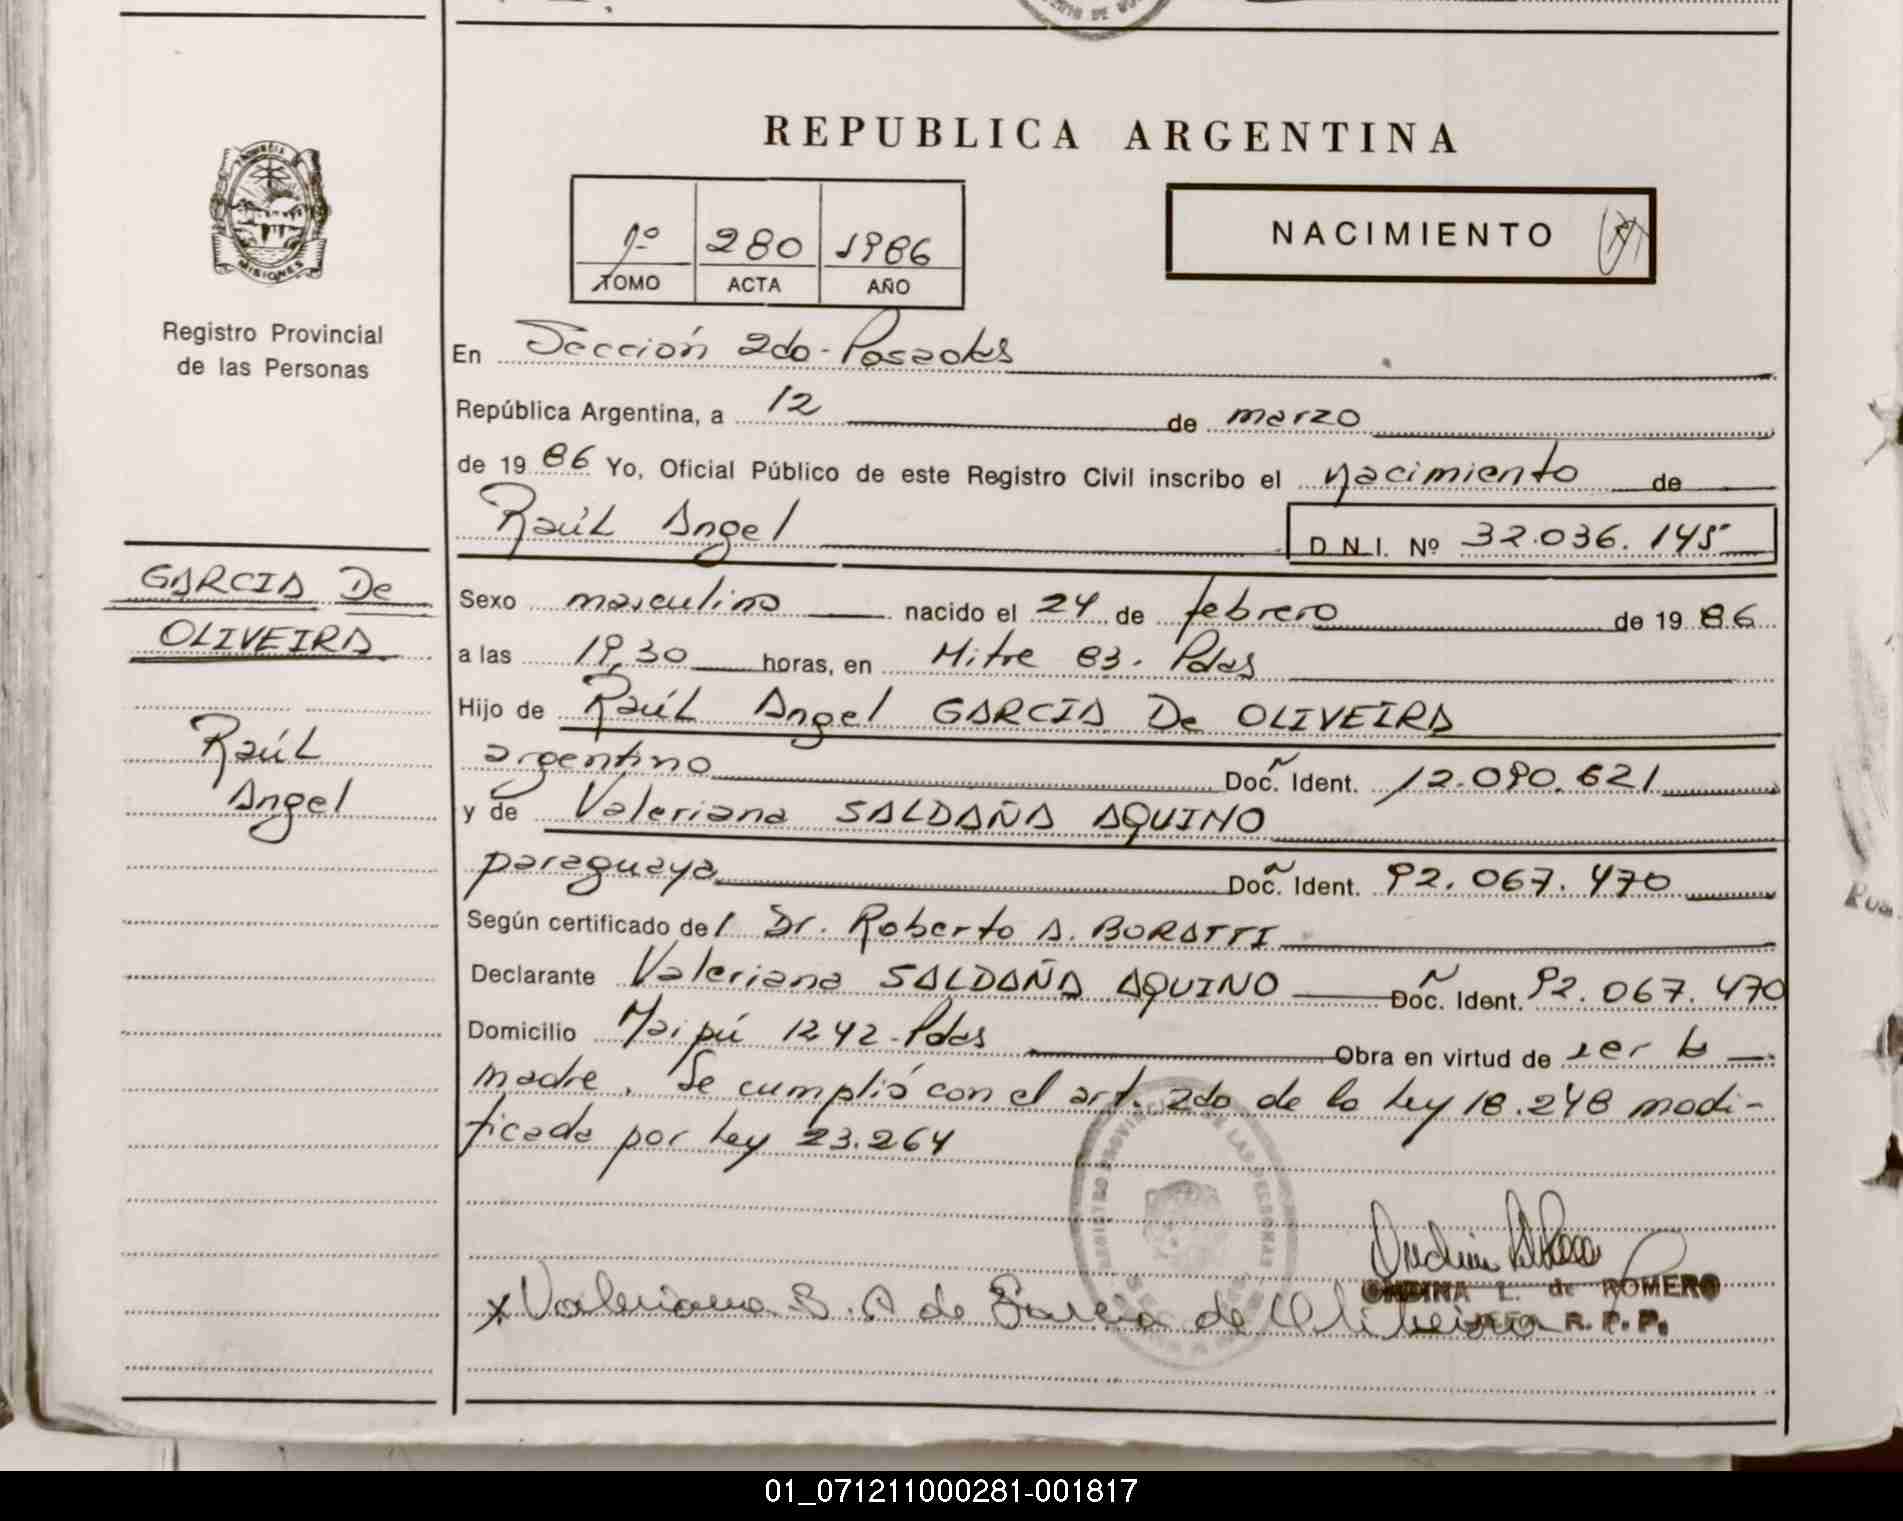 REPUBLICA ARGENTINA
PROVINCIA DE
MISIONES
Registro Provincial
de las Personas
1º 280 1986
TOMO ACTA AÑO
NACIMIENTO
En Sección 2do - Posadas
República Argentina, a 12 de marzo
de 1986 Yo, Oficial Público de este Registro Civil inscribo el nacimiento de
Raúl Angel D.N.I. Nº 32.036.145
GARCIA De
OLIVEIRA
Raúl
Angel
Sexo masculino nacido el 24 de febrero de 1986
a las 19,30 horas, en Mitre 83. Pdas
Hijo de Raúl Angel GARCIA De OLIVEIRA
argentino Doc. Ident. 12.090.621
y de Valeriana SALDAÑA AQUINO
paraguaya Doc. Ident. 92.067.470
Según certificado del Dr. Roberto A. BORATTI
Declarante Valeriana SALDAÑA AQUINO Doc. Ident. 92.067.470
Domicilio Maipú 1242 - Pdas Obra en virtud de ser la
madre. Se cumplió con el art. 2do de la ley 18.248 modi-
ficada por ley 23.264
REGISTRO PROVINCIAL DE LAS PERSONAS
x Valeriana S. A de Garcia de Oliveira
ONDINA L. de ROMERO
JEFA R. P. P.
01_071211000281-001817